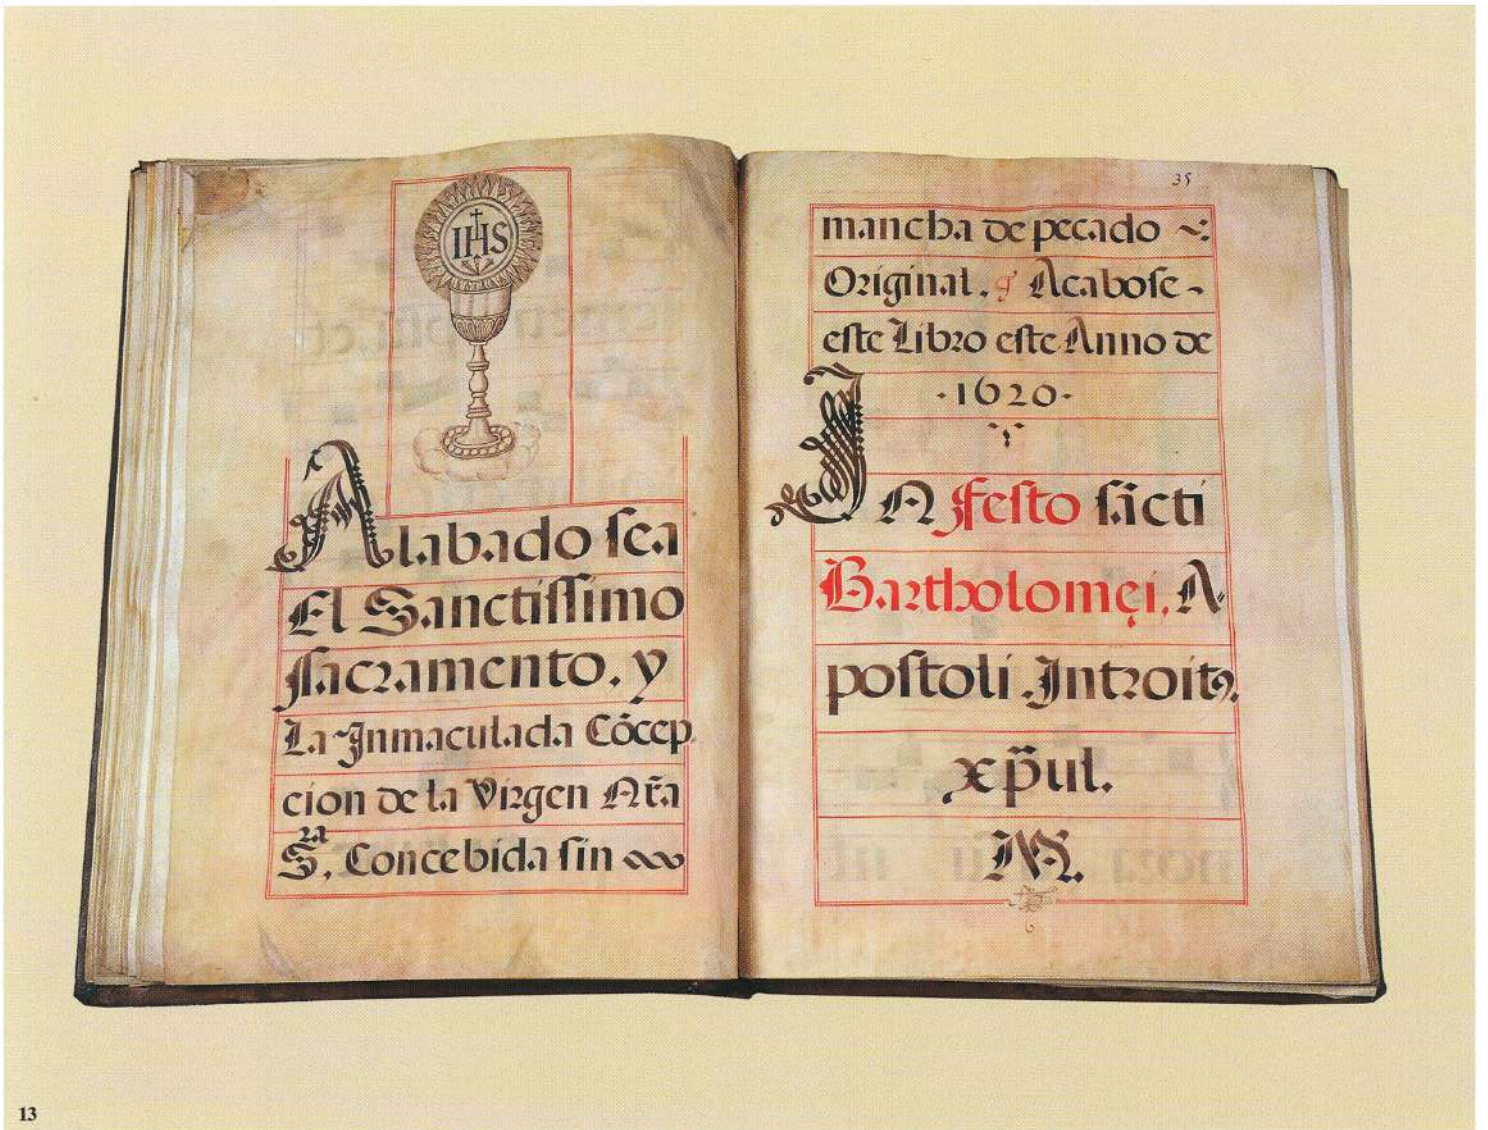 IHS
Alabado sea
El Sanctissimo
sacramento. y
La Inmaculada Cōcep
cion de la Virgen Nr̃a
S.ra, Concebida sin
35
mancha de pecado
Original. Acabose
este Libro este Anno de
·1620·
IN festo sācti
Bartholomęi, A
postoli. Introitꝰ.
xp̃ul.
13